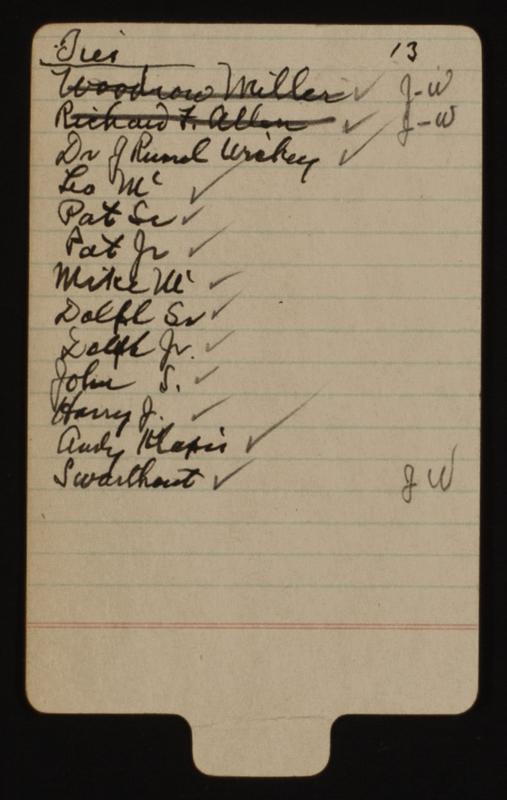 Ties 13
Woodrow Miller ✓ J-W
Richard F. Allen ✓ J-W
Dr J Rumd Wrickey ✓
Leo Mc ✓
Pat Sr ✓
Pat Jr ✓
Mike Mc ✓
Dolph Sr ✓
Dolph Jr. ✓
John S. ✓
Harry J. ✓
Andy Klapis ✓
Swarthout ✓ J W